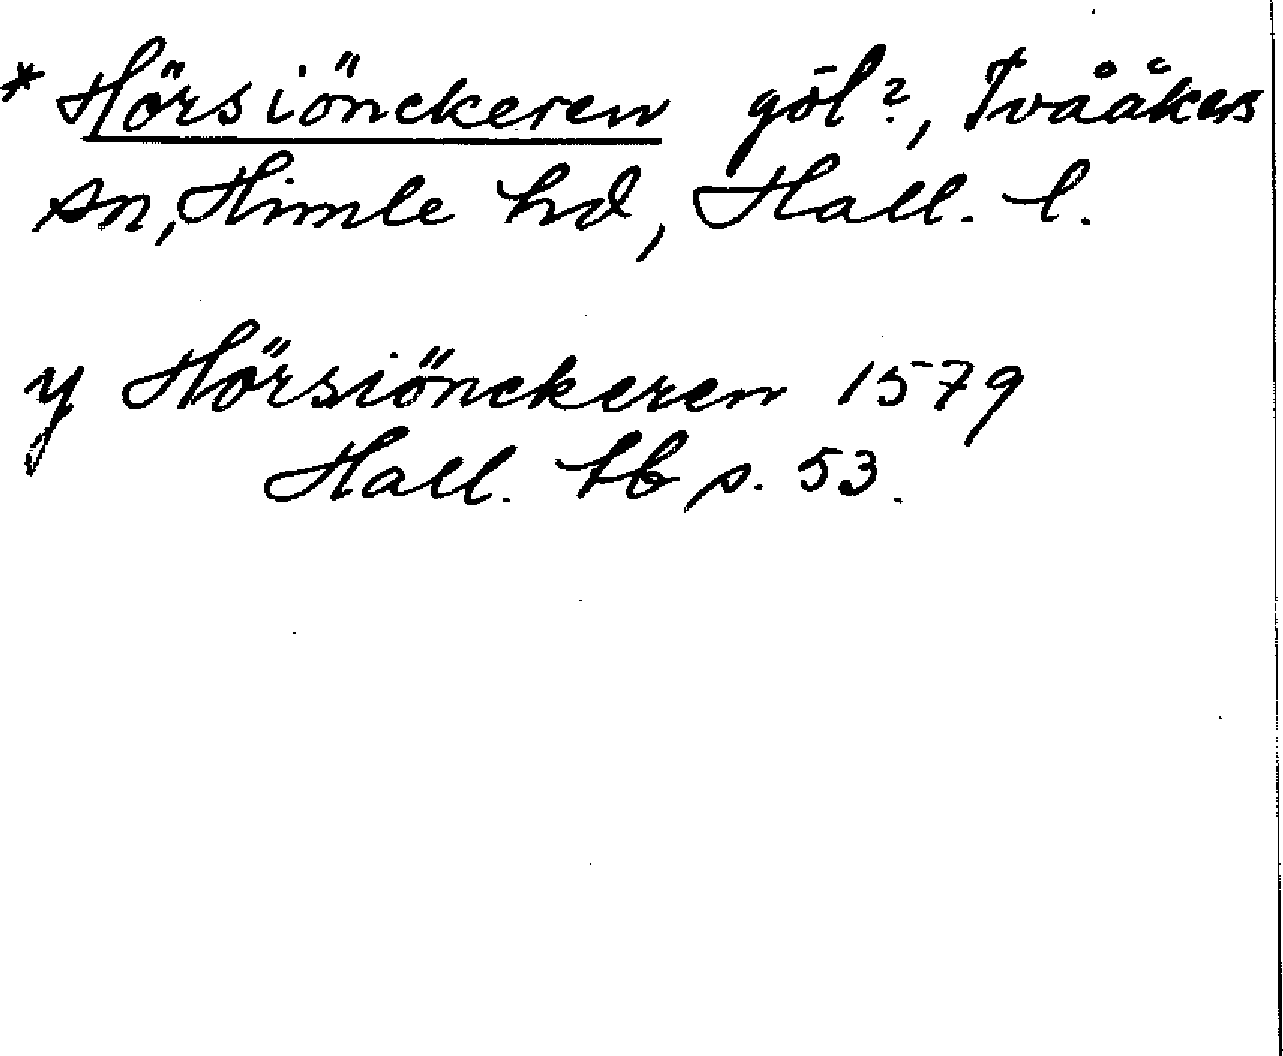 * Hörsiönckeren göl?, Tvååkers
sn, Himle hd, Hall. l.
y Hörsiönckeren 1579
Hall. lb s. 53.